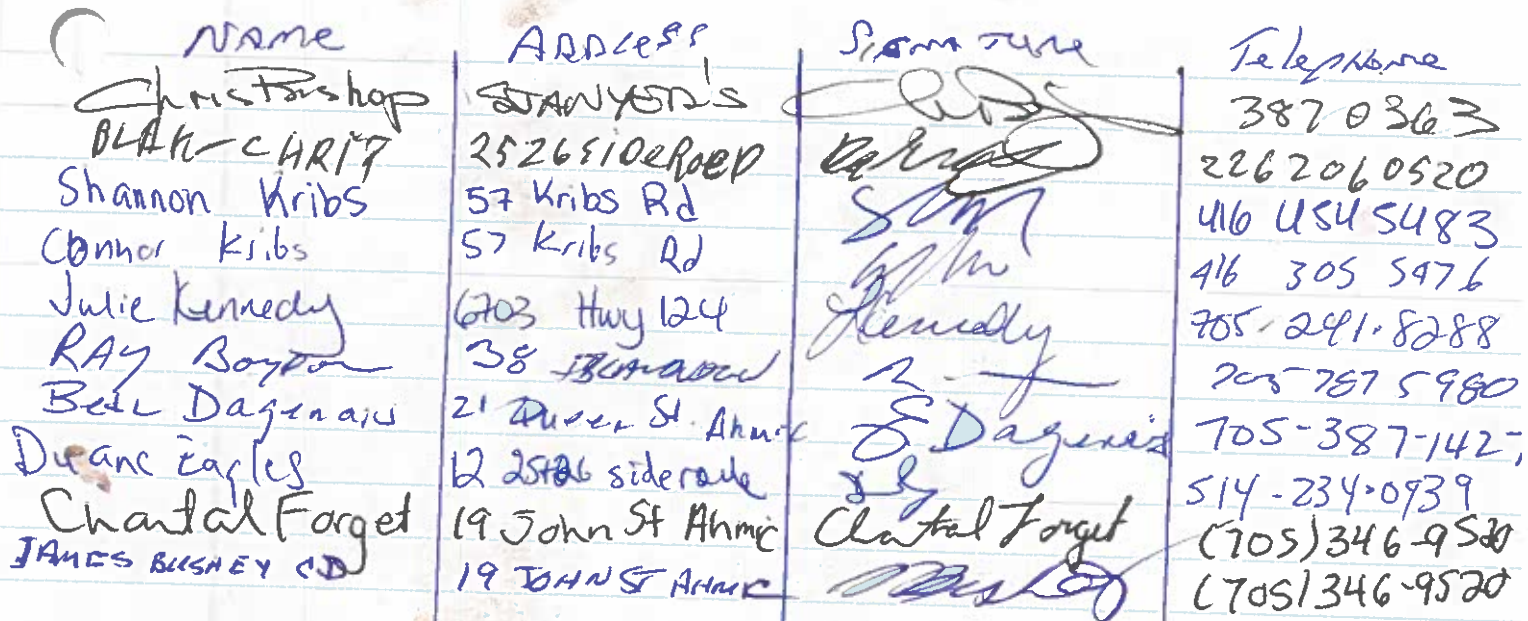 Name Address Signature Telephone
Chris Bishop STANYER'S 387 0363
BLAK-CHRIT 2526SiDeRoeD 226 206 0520
Shannon Kribs 57 Kribs Rd 416 454 5483
Connor Kribs 57 Kribs Rd 416 305 5476
Julie Kennedy 6703 Hwy 124 Kennedy 705.291.8288
RAY Boynton 38 705 787 5980
Dagenais 21 Queen St. Ahmic Dagenais 705-387-142
Duane Eagles 12 25+26 sideroade 514-234-0939
Chantal Forget 19 John St Ahmic Chantal Forget (705)346-9520
JAMES BUSHEY CD 19 JOHN ST AHMIC (705)346-9520